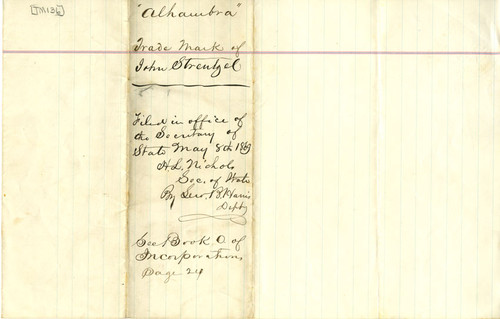 [TM136]
"Alhambra"
Trade Mark of
John Strentzel
Filed in office of
the Secretary of
State May 8th 1869
H.L. Nichols
Sec. of State
By Geo. B. Harris
Depty
See Book O of
Incorporations
page 24